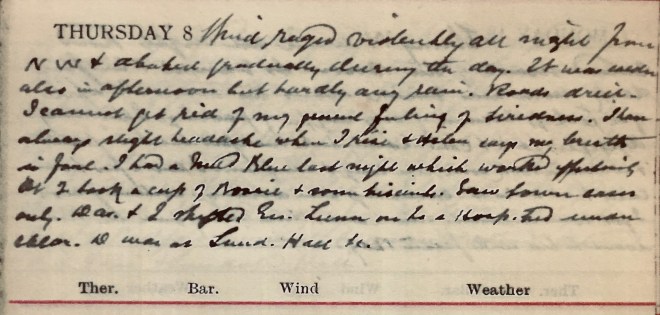 THURSDAY 8 Wind raged violently all night from
N W & abated gradually during the day. It was
also in afternoon but hardly any rain. Roads drier.
I cannot get rid of my general feeling of tiredness. I have
always slight headache when I rise & Helen says my breath
is foul. I had a Blue last night which worked effectively
At 2 took a cup of & some biscuits. Saw town cases
only. & I shifted Lunn on to a Hosp. bed under
chlor. D was at Hall
Ther. Bar. Wind Weather